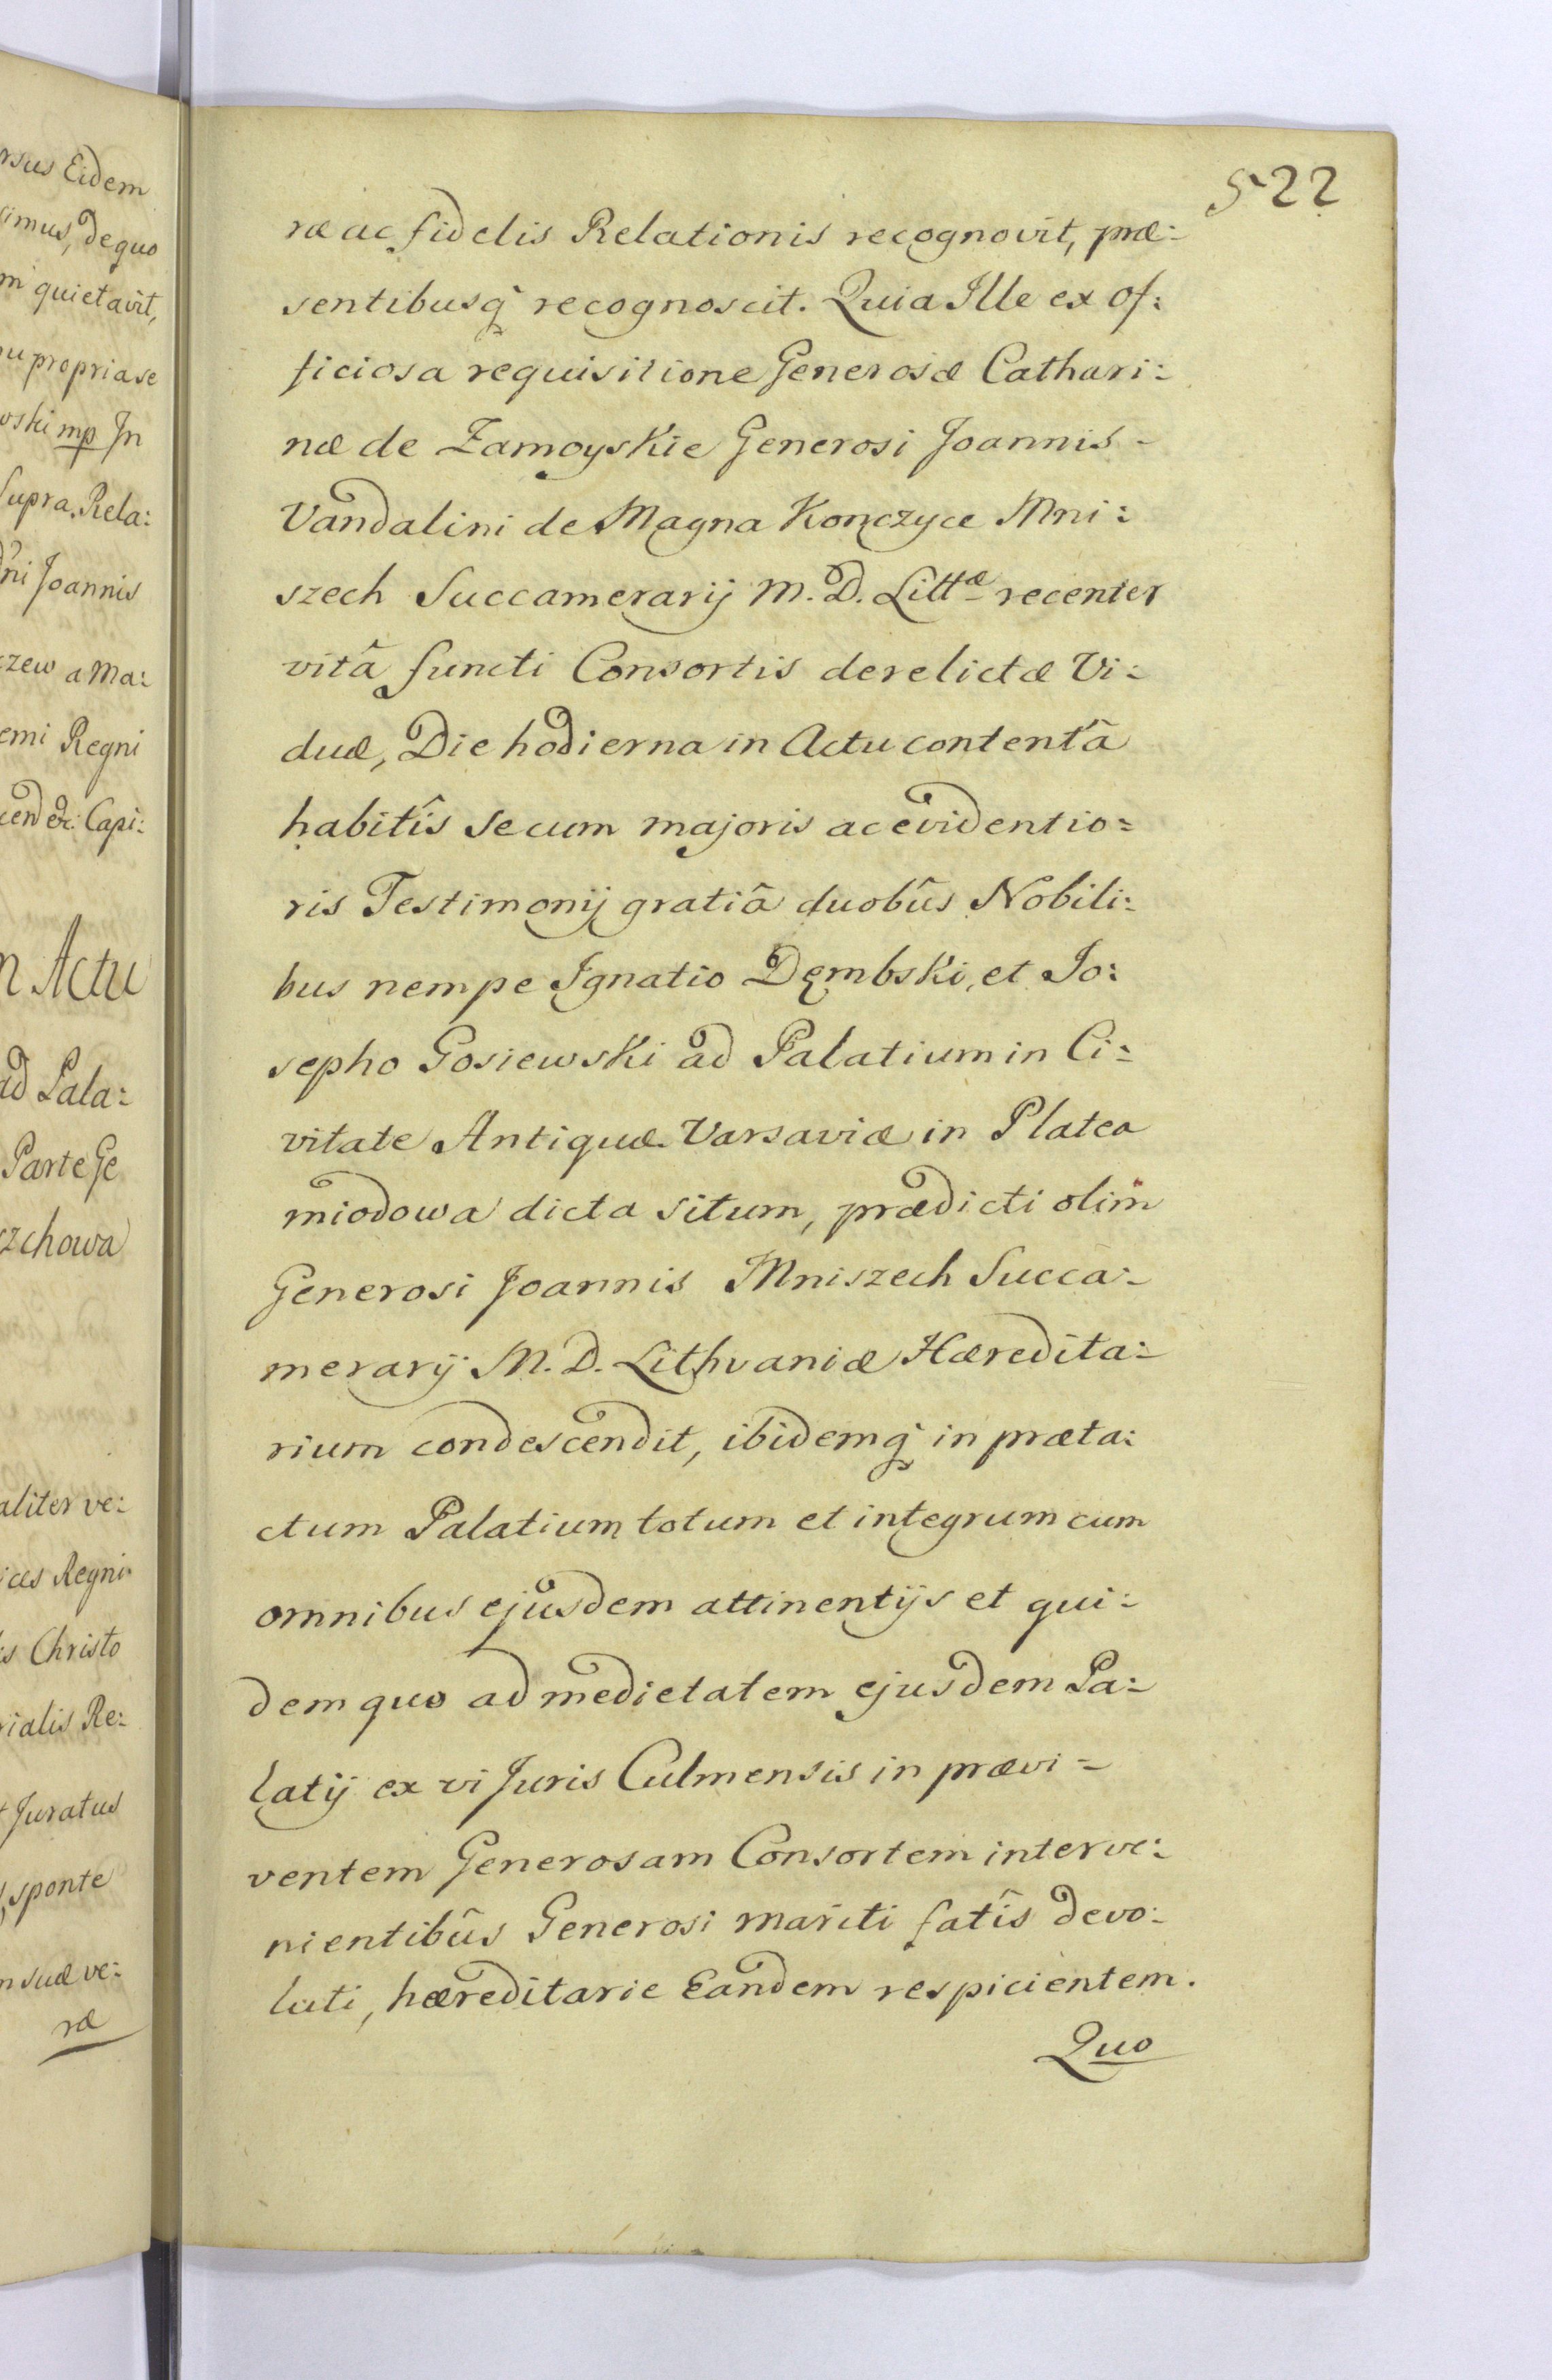 rsus Eidem
simus, de quo
m quietavit,
nu propria se
wski mp In
Supra. Rela:
dni Joannis
czew a Ma:
emi Regni
cend &c: Capi:
n Actu
ad Pala:
Parte Ge
szchowa
aliter ve:
ices Regni
is Christo
rialis Re:
t Juratus
, sponte
m suæ ve:
ræ
522
ræ ac fidelis Relationis recognovit, præ:
sentibusq; recognoscit. Quia Ille ex of:
ficiosa requisitione Generosæ Cathari:
næ de Zamoyskie Generosi Joannis -
Vandalini de Magna Konczyce Mni:
szech Succamerarij M. D. Littæ recenter
vitâ functi Consortis derelictæ Vi:
duæ, Die hodierna in Actu contentâ
habitîs secum majoris ac evidentio=
ris Testimonij gratiâ duobûs Nobili:
bus nempe Ignatio Dęmbski, et Jo:
sepho Gosiewski ad Palatium in Ci:
vitate Antiquæ Varsaviæ in Platea
miodowa dicta situm, prædicti olim
Generosi Joannis Mniszech Succa:
merarij M. D. Lithvaniæ Hæredita:
rium condescendit, ibidemq; in præta:
ctum Palatium totum et integrum cum
omnibus ejusdem attinentijs et qui:
dem quo ad medietatem ejusdem Pa:
latij ex vi Juris Culmensis in prævi=
ventem Generosam Consortem interve:
nientibûs Generosi mariti fatîs devo:
luti, hæreditarie Eandem respicientem.
Quo